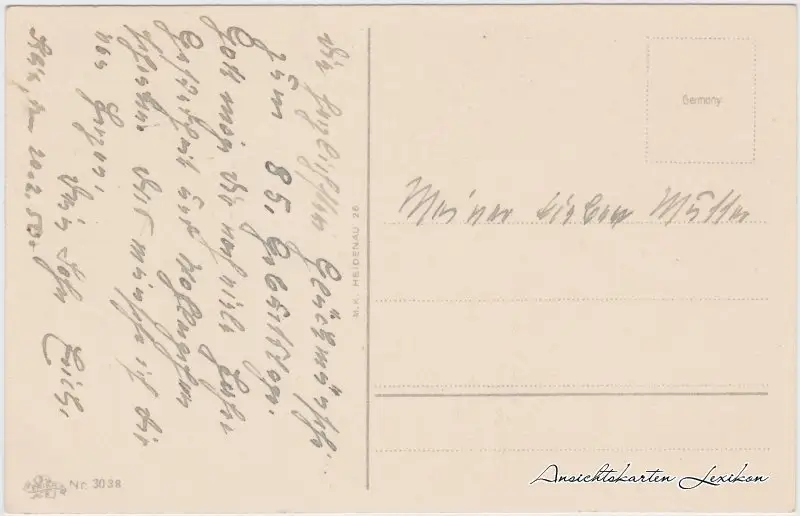 Die herzlichsten Glückwünsche
zum 85. Geburtstage.
Gott möge Dir noch viele Jahre
Gesundheit und Wohlergehen
schenken. Das wünscht ich Dir
von Herzen,
Dein Sohn Erich.
den 20.2.50.
M.K. HEIDENAU 26
Germany
Meiner lieben Mutter
Nr. 3038
Ansichtskarten Lexikon